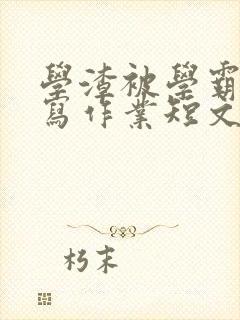 學渣被學霸
寫作業短文
朽末